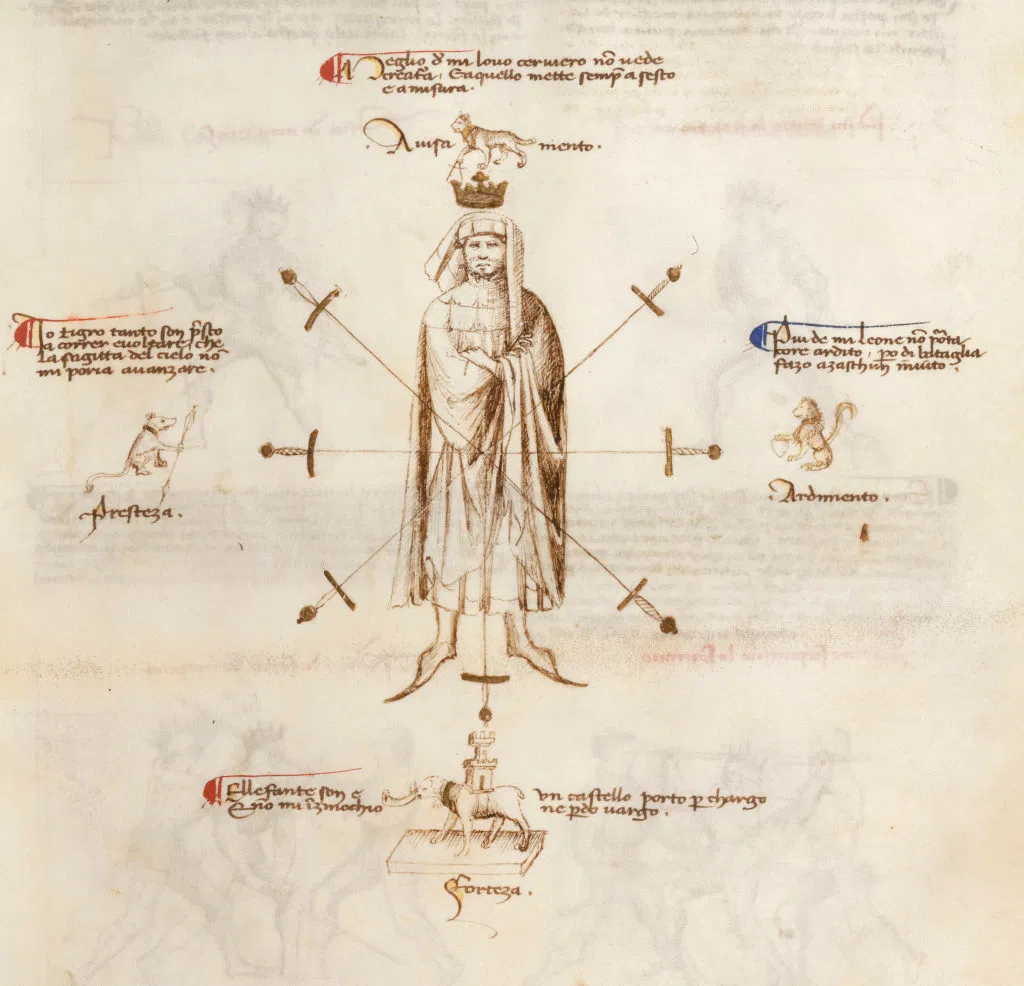 Meglio d̄ mi lovo cerviero nō vede
creat̄a, Eaquello mette semp̄ a sesto
e a misura.
Avisa mento.
Io tigro tanto son p̄sto
a correr e voltare, che
la sagitta del cielo nō
mi poria avanzare.
Presteza.
Piu de mi leone nō p̄orta
core ardito, po̅ di bataglia
fazo azaschūn invito.
Ardimento.
Ellefante son e un castello porto p̱ chargo
E nō mi īzinochio ne p̱do vargo.
Forteza.